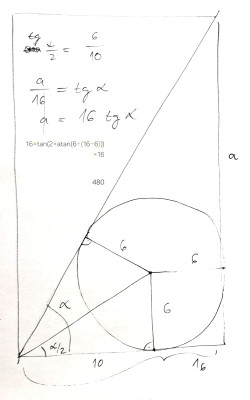 tg α/2 = 6/10
a/16 = tg α
a = 16 tg α
16*tan(2*atan(6÷(16−6)))
*16
480
a
6
6
6
α
α/2
10
16